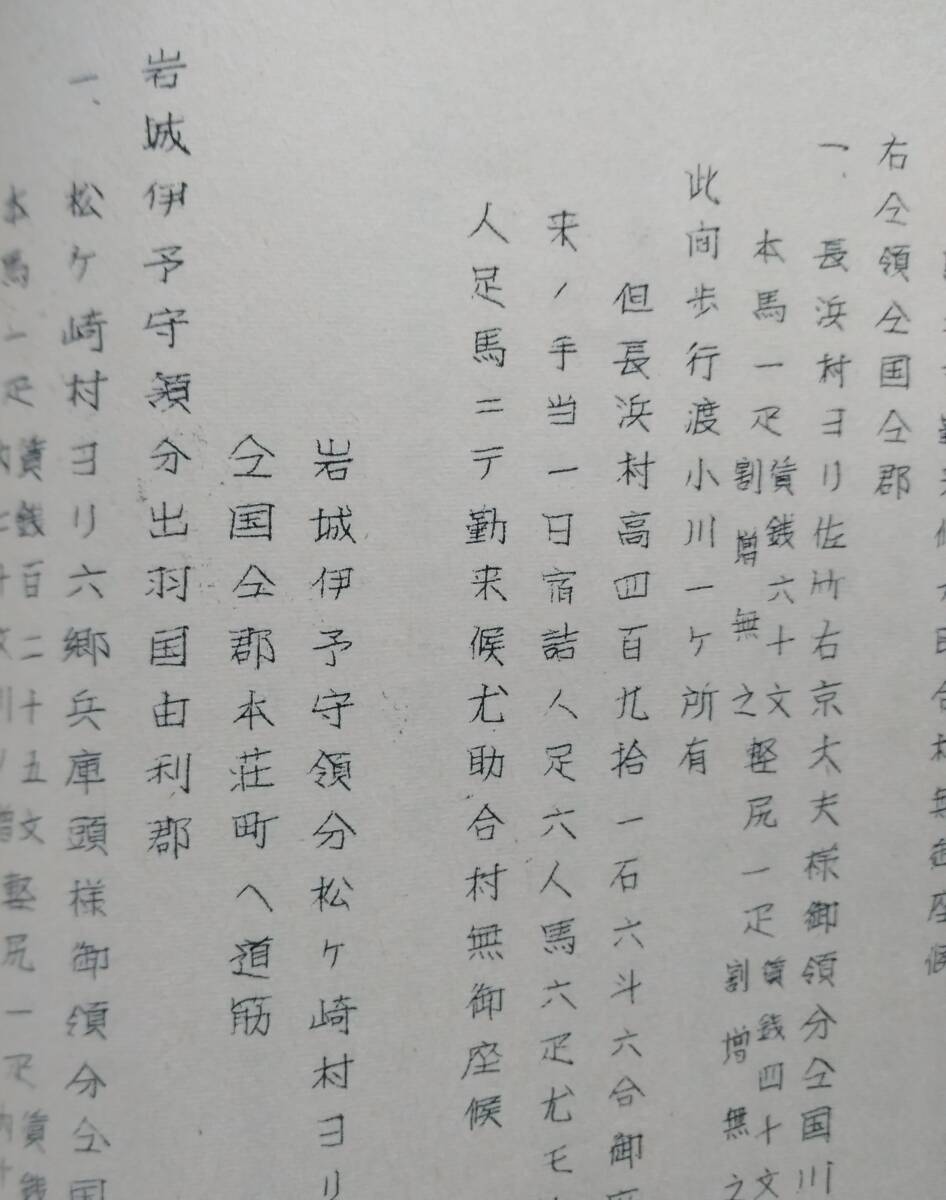 右仝領仝国仝郡
一、長浜村ヨリ佐竹右京大夫様御領分仝国川
本馬一疋賃銭六十文割増無之軽尻一疋賃銭四十文割増無之
此向歩行渡小川一ヶ所有
但長浜村高四百九拾一石六斗六合御座
来ノ手当一日宿詰人足六人馬六疋尤モ
人足馬ニテ勤来候尤助合村無御座候
岩城伊予守領分松ヶ崎村ヨリ
仝国仝郡本荘町へ道筋
岩城伊予守領分出羽国由利郡
一、松ケ崎村ヨリ六郷兵庫頭様御領分仝国
本馬一疋賃銭百二十五文軽尻一疋賃銭